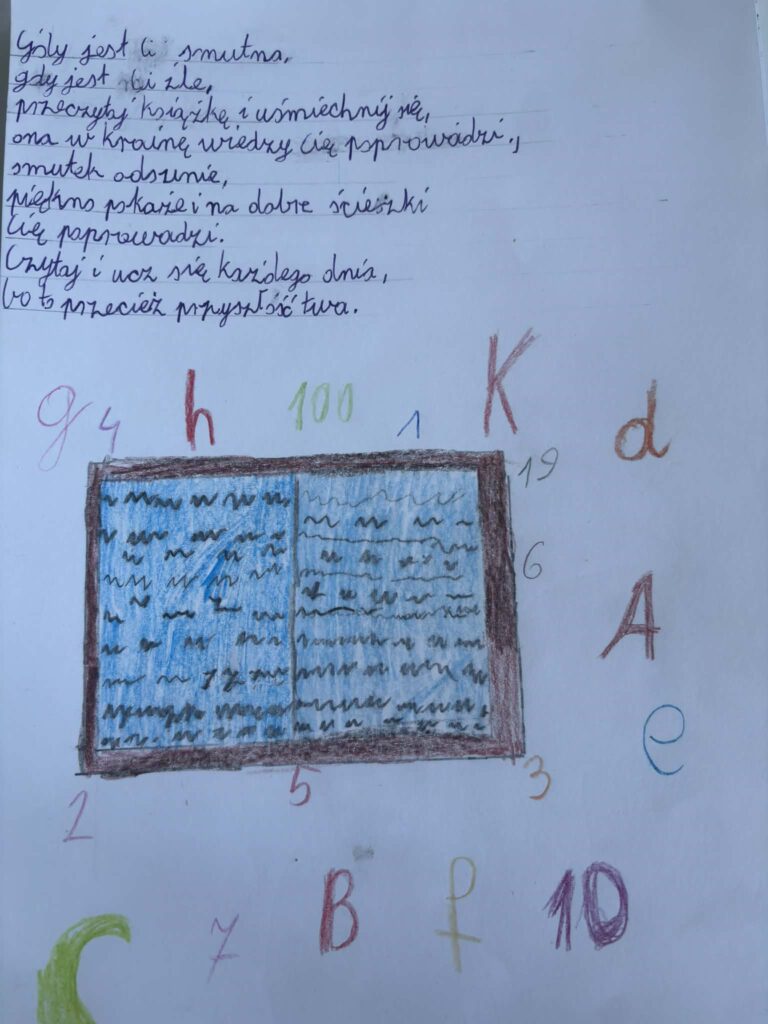 Gdy jest Ci smutno,
gdy jest ci źle,
przeczytaj książkę i uśmiechnij się,
ona w krainę wiedzy Cię poprowadzi.,
smutek odsunie,
piękno pokaże i na dobre ścieszki
Cię poprowadzi.
Czytaj i ucz się każdego dnia,
bo to przecież przyszłość twa.
g 4 h 100 1 K d
19
6
A
e
2 5 3
C 7 B f 10